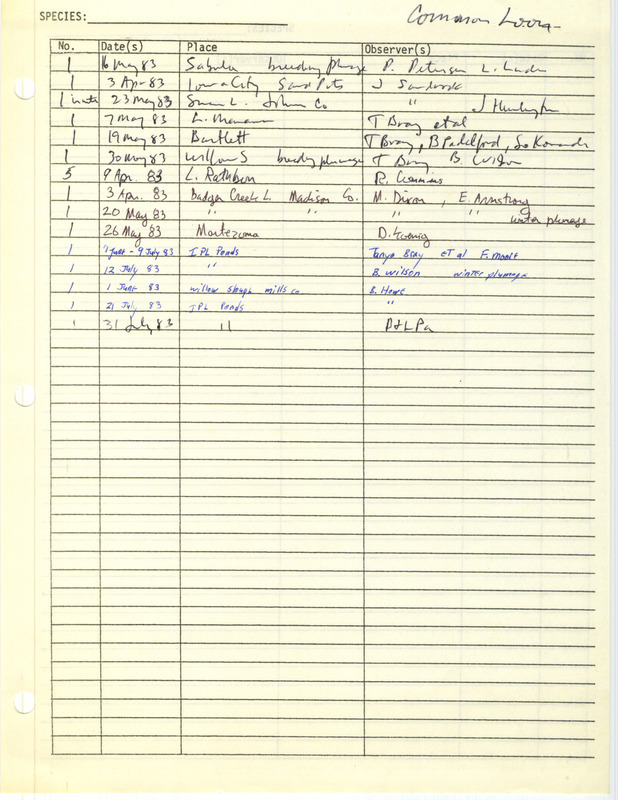 SPECIES: Common Loon
No. Date(s) Place Observer(s)
1 16 May 83 Sabula breeding plumage P. Petersen L. Linder
1 3 Apr 83 Iowa City Sand Pits J
1 23 May 83 Johnson Co " J Huntington
1 7 May 83 L. Manawa T Bray et al
1 19 May 83 Bartlett T Bray, B Padelford,
1 30 May 83 Willow S breeding plumage T Bray B. Wilson
5 9 Apr. 83 L. Rathbun R. Cummins
1 3 Apr. 83 Badger Creek L. Madison Co. M. Dixon, E. Armstrong
1 20 May 83 " " " " winter plumage
1 26 May 83 Montezuma D. Koenig
1 1 June - 9 July 83 IPL Ponds Tanya Bray et al F. Moore
1 12 July 83 " B. Wilson winter plumage
1 1 June 83 willow slough mills co B. Howe
1 21 July 83 IPL Ponds "
1 31 July 83 " P & L Pa